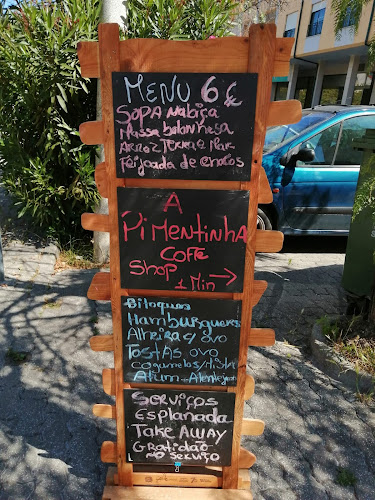 MENU 6€
SOPA Nabiça
Massa bolonhesa
Arroz Terra e Mar
Feijoada de chocos
A
PiMentinha
Coffe
Shop
1 Min →
Bitoques
Hamburgueres
Alheira c/ ovo
Tostas ovo
cogumelos/mista
Atum - Alentejana
Serviços
Esplanada
TAKE AWAY
Gratidão
no serviço